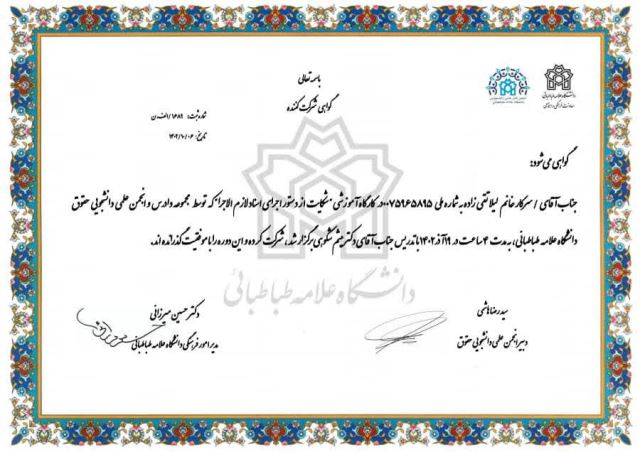 باسمه تعالی
گواهی شرکت کننده
دانشگاه علامه طباطبائی
معاونت فرهنگی و اجتماعی
شماره ثبت: ۱۶۸۹/الف د ن
تاریخ: ۱۴۰۲/۱۰/۰۶
گواهی می شود:
جناب آقای / سرکار خانم لیلا تقی زاده به شماره ملی ۰۰۷۵۹۶۵۸۹۵ در کارگاه آموزشی شکایت از دستور اجرای اسناد لازم الاجرا که توسط مجموعه دادرس و انجمن علمی دانشجویی حقوق
دانشگاه علامه طباطبائی، به مدت ۴ ساعت در ۱۹ آذر ۱۴۰۲ با تدریس جناب آقای دکتر میثم شکوهی برگزار شد، شرکت کرده و این دوره را با موفقیت گذرانده اند.
دانشگاه علامه طباطبائی
سیدرضا هاشمی
دبیر انجمن علمی دانشجویی حقوق
دکتر حسین میرزائی
مدیر امور فرهنگی دانشگاه علامه طباطبائی